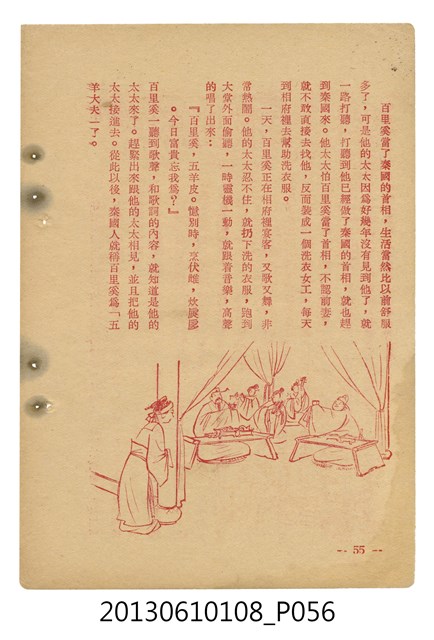 百里奚當了秦國的首相，生活當然比以前舒服
多了，可是他的太太因爲好幾年沒有見到他了，就
一路打聽，打聽到他已經做了秦國的首相，就也趕
到秦國來。他太太怕百里奚當了首相，不認前妻，
就不敢直接去找他，反而裝成一個洗衣女工，每天
到相府裡去幫助洗衣服。
一天，百里奚正在相府裡宴客，又歌又舞，非
常熱鬧。他的太太忍不住，就扔下洗的衣服，跑到
大堂外面偷聽，一時靈機一動，就跟着音樂，高聲
的唱了出來：
『百里奚，五羊皮。憶別時，烹伏雌，炊扊扅
。今日富貴忘我爲？』
百里奚一聽到歌聲，和歌詞的內容，就知道是他的
太太來了。趕緊出來跟他的太太相見，並且把他的
太太接進去。從此以後，秦國人就稱百里奚爲「五
羊大夫」了。
-- 55 --
20130610108_P056